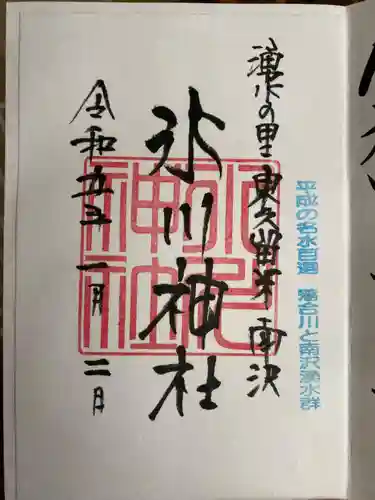 平成の名水百選 落合川と南沢湧水群
湧水の里 東久留米 南沢
氷川神社
氷川
神社
令和五年 一月 二日